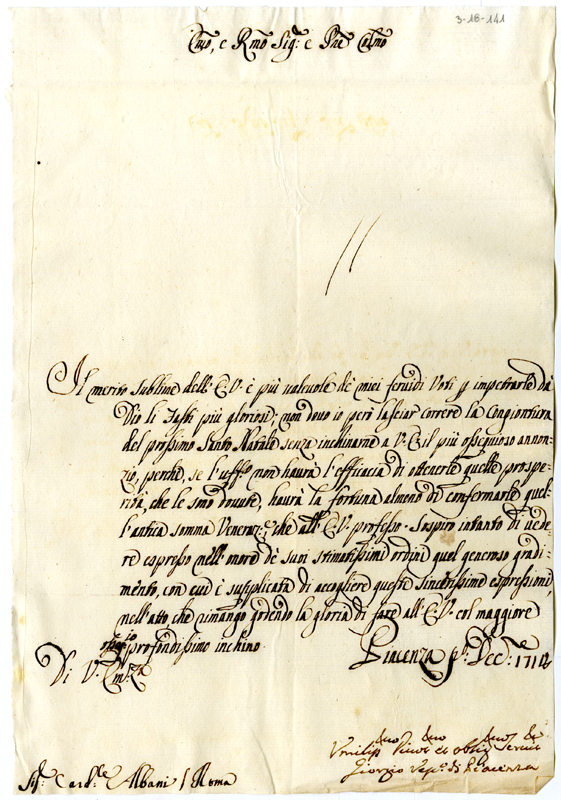 3-18-141
Emo, e Rmo Sig.r e Pne Colmo
Il merito sublime dell'E.V. è più valevole de' miei fervidi Voti p impetrarle da
Dio li Fasti più gloriosi; non devo io però lasciar correre la Congiontura
del prossimo Santo Natale senza inchinarne a V.E. il più ossequioso annon-
zio, perche, se l'uffo non haurà l'efficacia di ottenerle quelle prospe-
rità, che le sono dovute, haurà la fortuna almeno di confermarle quel-
l'antica somma Veneraz.e, che all'E.V. professo. Sospiro intanto di vede-
re espresso nell'onore de' suoi stimatissimi ordini quel generoso gradi-
mento, con cui è supplicata di accogliere queste sincerissime espressioni,
nell'atto, che rimango godendo la gloria di fare all'E.V. col maggiore
ossequio profondissimo inchino.
Di V.Em.za
Piacenza p.o Dec.e 1712
Umiliss.mo Divot.mo et oblig.mo Serv.re
Giorgio Vesc.o di Piacenza
Sig.r Card.le Albani / Roma